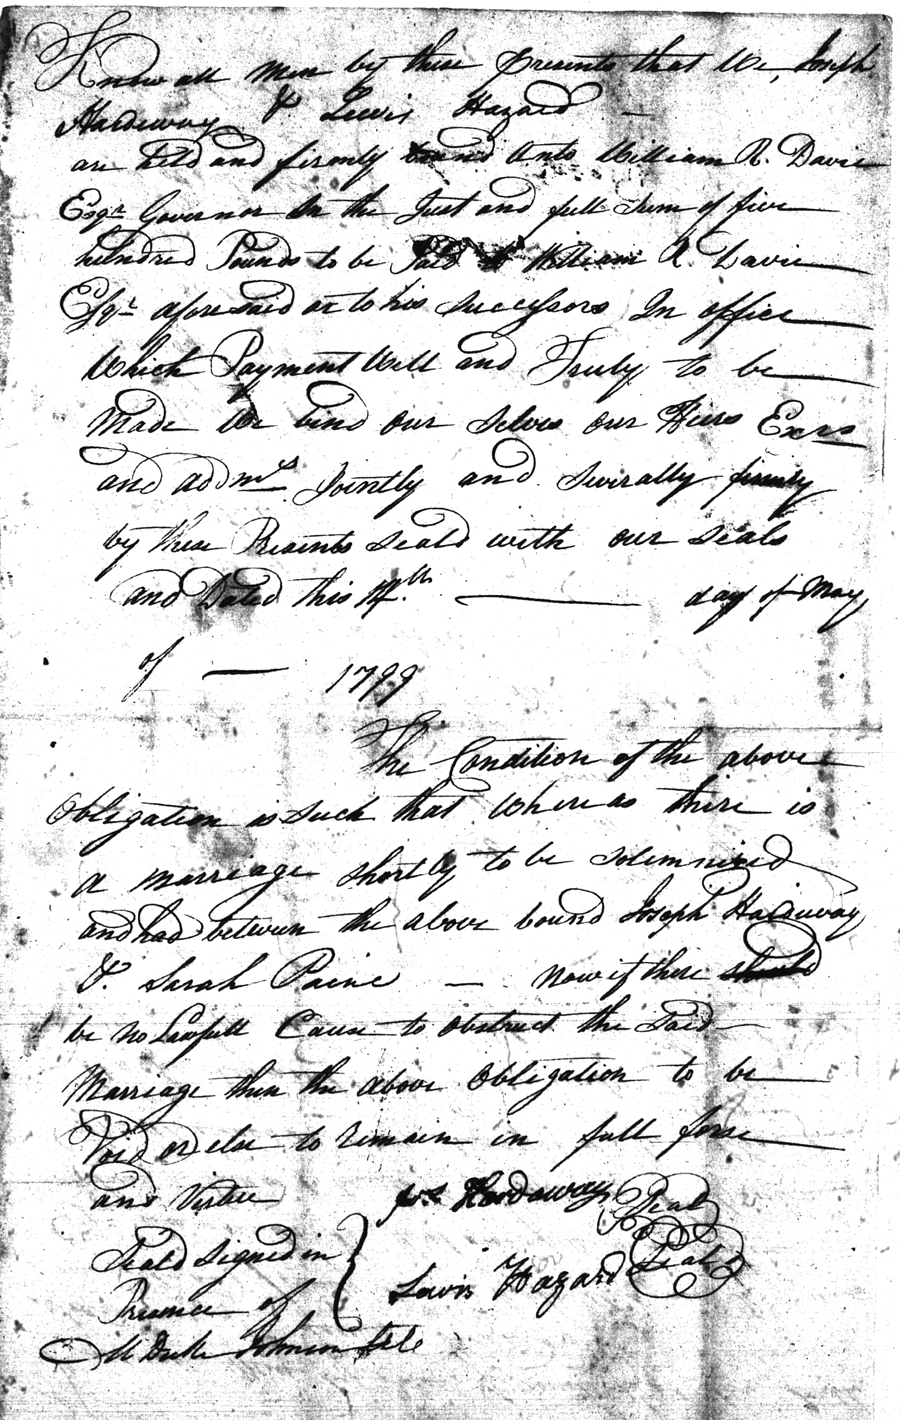 Know all Men by these Presents that We, Joseph
Hardeway & Lewis Hazard —
are held and firmly bound Unto William R. Davie
Esqr. Governor In the Just and full Sum of five
hundred Pounds to be Paid to William R. Davie
Esqr. aforesaid or to his Successors In office
Which Payment Well and Truly to be
Made We bind our Selves our Heirs Exrs
and admrs Jointly and Severally firmly
by these Presents Seald with our Seals
and Dated this 14th — day of May
of — 1799
The Condition of the above
Obligation is Such that Where as there is
a marriage shortly to be Solemnized
and had between the above bound Joseph Hardeway
& Sarah Paine — Now if there should
be no Lawfull Cause to obstruct the Said
Marriage then the above Obligation to be
Void or else to remain in full force
and Virtue Jos Hardaway Seal
Seald Signed in
Presence of Lewis Hazard Seal
Johnson